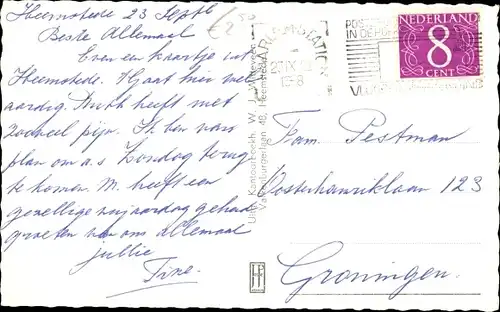 Heemstede 23 Sept
€ 2 50
Beste Allemaal
Even een kaartje uit
Heemstede. 't gaat hier wel
aardig. Anth heeft niet
zoveel pijn. Ik ben van
plan om a.s. Zondag terug
te komen. M. heeft een
gezellige verjaardag gehad
groeten van ons allemaal
jullie
Tine.
Uitg. Kantoorboekh. W. J.
Valkenburgerlaan 48, Heemstede
HAARLEM STATION
IX
NEDERLAND
8
CENT
Fam. Pestman
Oosterhamriklaan 123
Groningen.